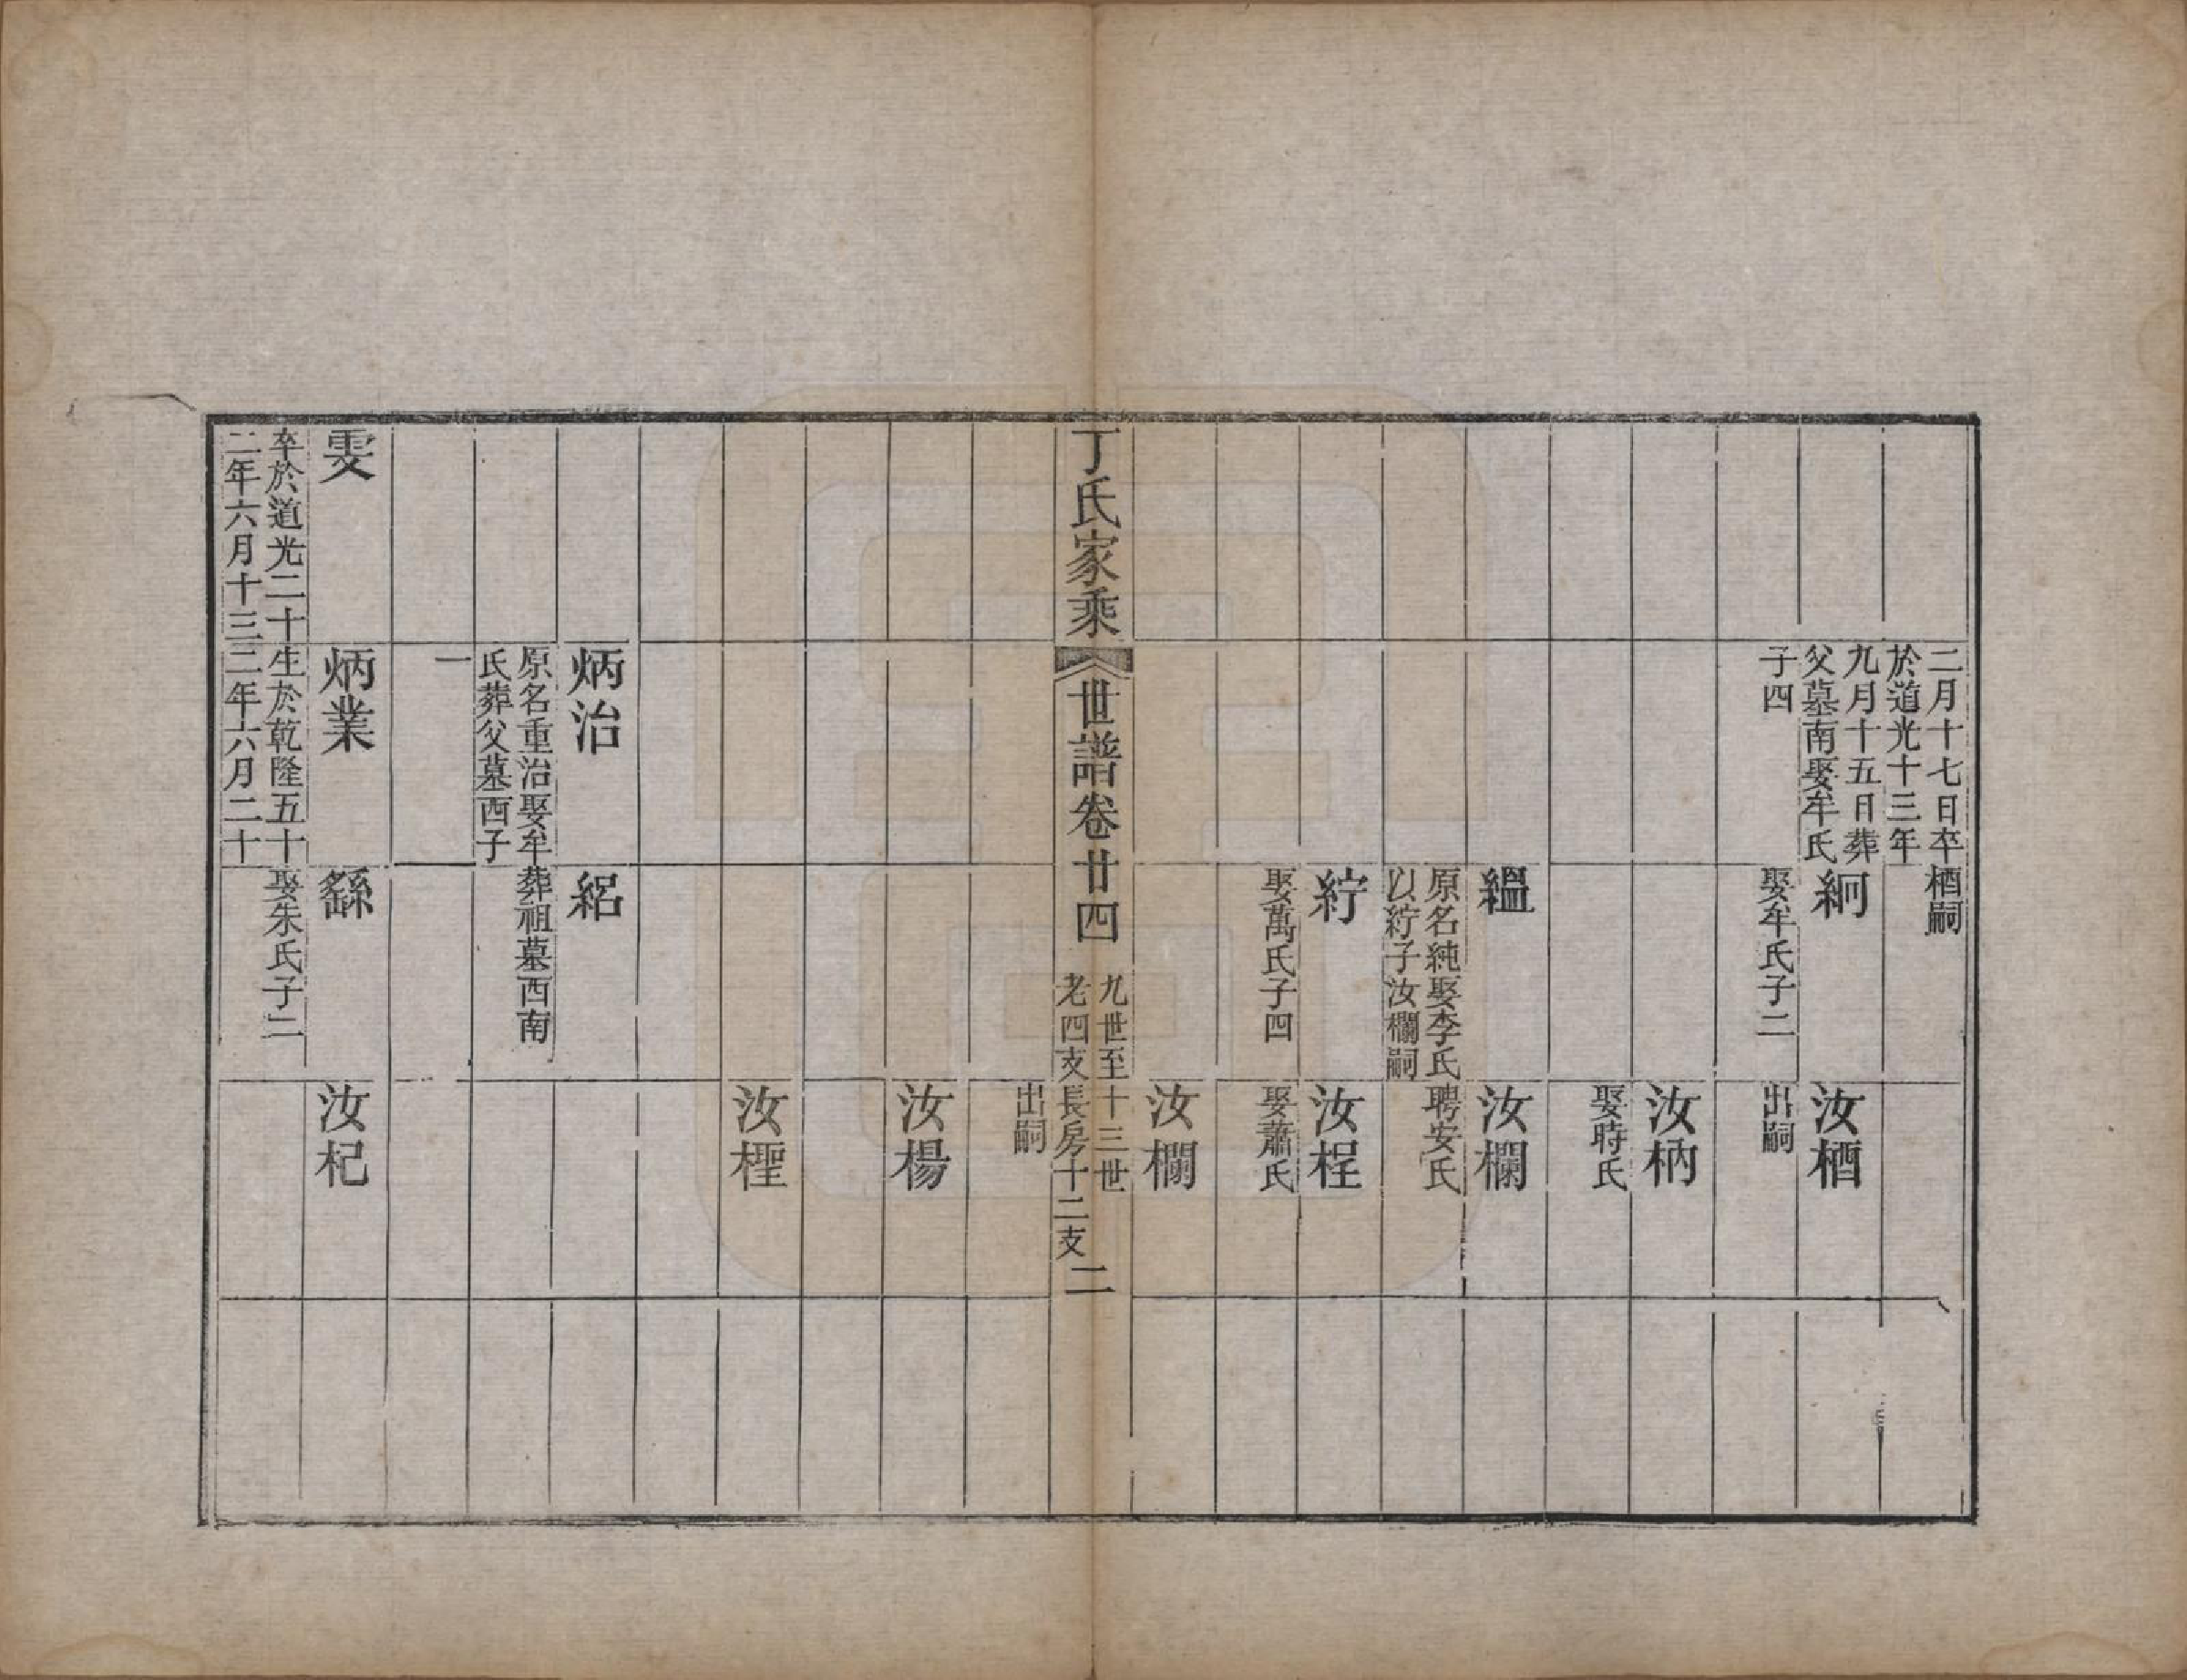 二月十七日卒
於道光十三年
九月十五日葬
父墓南娶牟氏
子四
栖嗣
絅
娶牟氏子二
汝栖
出嗣
汝柄
娶時氏
縕
原名純娶李氏
以紵子汝欄嗣
汝欄
聘安氏
紵
娶萬氏子四
汝桯
娶蕭氏
汝欄
出嗣
丁氏家乘
世譜卷廿四
九世至十三世
老四支長房十二支
二
汝楊
汝檉
炳治
原名重治娶牟
氏葬父墓西子
一
紹
葬祖墓西南
雯
卒於道光二十
二年六月十三
炳業
生於乾隆五十
二年六月二十
繇
娶朱氏子二
汝杞